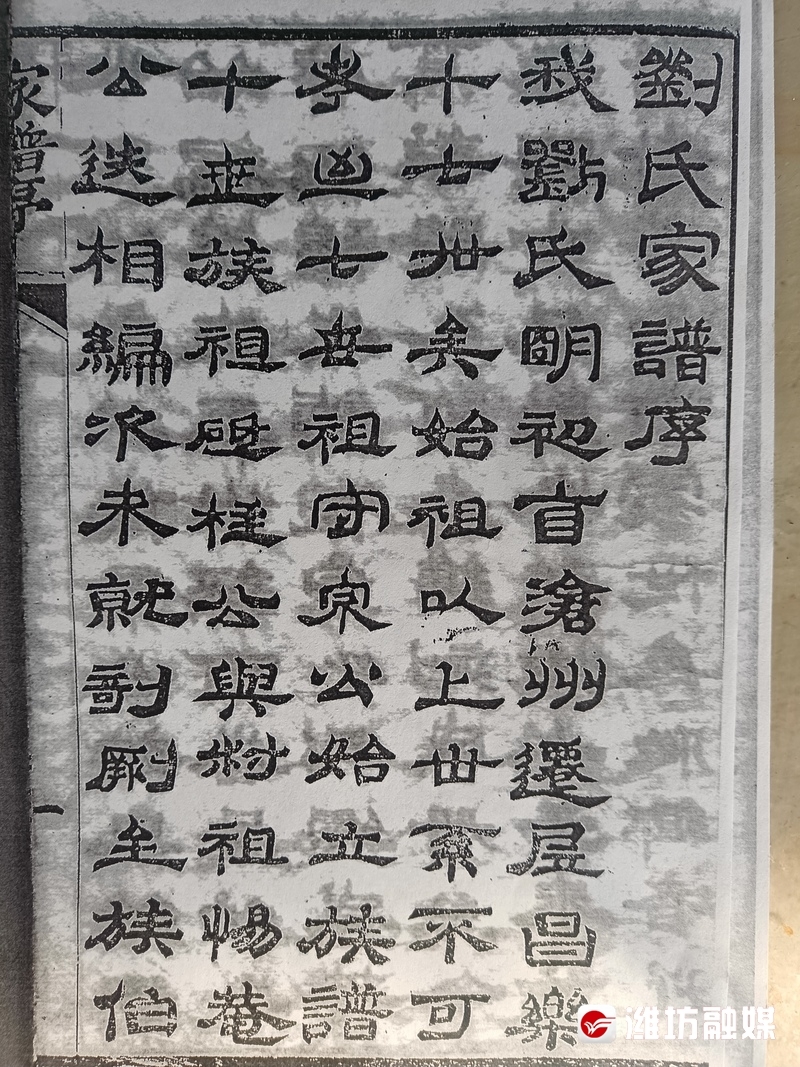 劉氏家譜序
我劉氏明初自滄州遷居昌樂
十七世矣始祖以上世系不可
考七世祖守公始立族譜
十世族祖砥柱公與叔祖惕菴
公迭相編次未就剞劂至族伯
家譜序
一
潍坊融媒